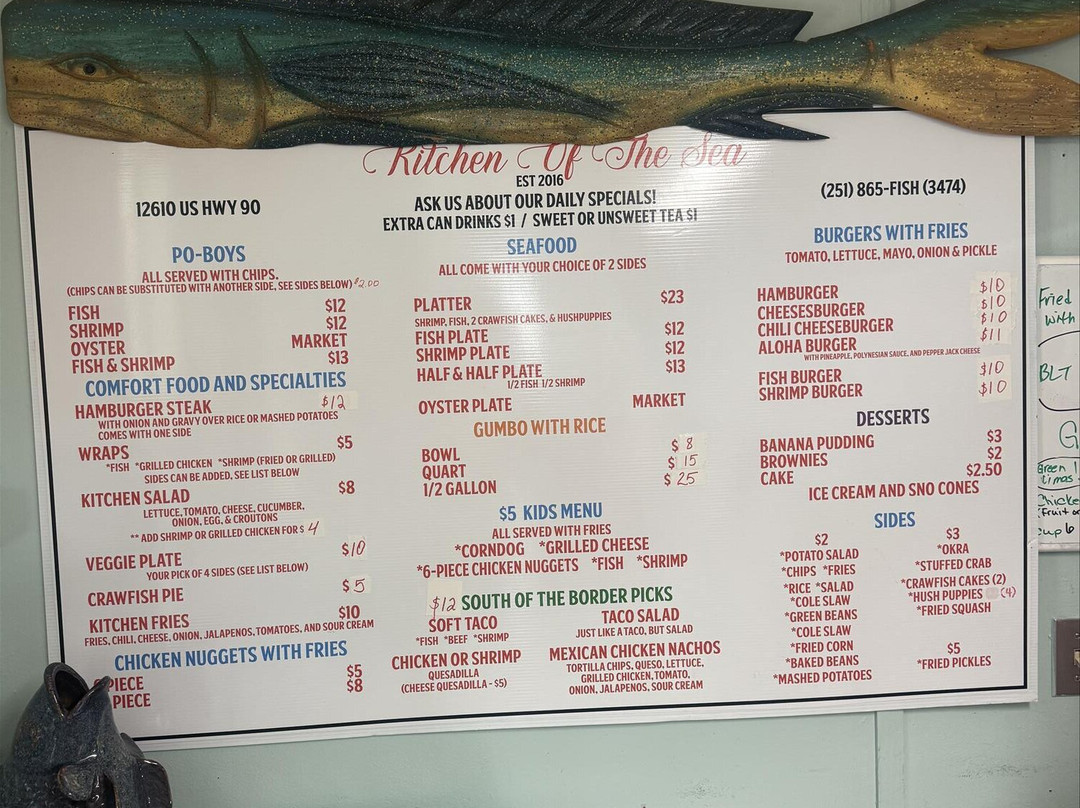 Kitchen Of The Sea
EST 2016
12610 US HWY 90
ASK US ABOUT OUR DAILY SPECIALS!
EXTRA CAN DRINKS $1 / SWEET OR UNSWEET TEA $1
(251) 865-FISH (3474)
PO-BOYS
ALL SERVED WITH CHIPS.
(CHIPS CAN BE SUBSTITUTED WITH ANOTHER SIDE, SEE SIDES BELOW) $2.00
FISH $12
SHRIMP $12
OYSTER MARKET
FISH & SHRIMP $13
COMFORT FOOD AND SPECIALTIES
HAMBURGER STEAK $12
WITH ONION AND GRAVY OVER RICE OR MASHED POTATOES
COMES WITH ONE SIDE
WRAPS $5
*FISH *GRILLED CHICKEN *SHRIMP (FRIED OR GRILLED)
SIDES CAN BE ADDED, SEE LIST BELOW
KITCHEN SALAD $8
LETTUCE, TOMATO, CHEESE, CUCUMBER,
ONION, EGG, & CROUTONS
** ADD SHRIMP OR GRILLED CHICKEN FOR $ 4
VEGGIE PLATE $10
YOUR PICK OF 4 SIDES (SEE LIST BELOW)
CRAWFISH PIE $5
KITCHEN FRIES $10
FRIES, CHILI, CHEESE, ONION, JALAPENOS, TOMATOES, AND SOUR CREAM
CHICKEN NUGGETS WITH FRIES
PIECE $5
PIECE $8
SEAFOOD
ALL COME WITH YOUR CHOICE OF 2 SIDES
PLATTER $23
SHRIMP, FISH, 2 CRAWFISH CAKES, & HUSHPUPPIES
FISH PLATE $12
SHRIMP PLATE $12
HALF & HALF PLATE $13
1/2 FISH 1/2 SHRIMP
OYSTER PLATE MARKET
GUMBO WITH RICE
BOWL $ 8
QUART $ 15
1/2 GALLON $ 25
$5 KIDS MENU
ALL SERVED WITH FRIES
*CORNDOG *GRILLED CHEESE
*6-PIECE CHICKEN NUGGETS *FISH *SHRIMP
$12 SOUTH OF THE BORDER PICKS
SOFT TACO
*FISH *BEEF *SHRIMP
CHICKEN OR SHRIMP
QUESADILLA
(CHEESE QUESADILLA - $5)
TACO SALAD
JUST LIKE A TACO, BUT SALAD
MEXICAN CHICKEN NACHOS
TORTILLA CHIPS, QUESO, LETTUCE,
GRILLED CHICKEN, TOMATO,
ONION, JALAPENOS, SOUR CREAM
BURGERS WITH FRIES
TOMATO, LETTUCE, MAYO, ONION & PICKLE
HAMBURGER $10
CHEESESBURGER $10
CHILI CHEESEBURGER $10
ALOHA BURGER $11
WITH PINEAPPLE, POLYNESIAN SAUCE, AND PEPPER JACK CHEESE
FISH BURGER $10
SHRIMP BURGER $10
DESSERTS
BANANA PUDDING $3
BROWNIES $2
CAKE $2.50
ICE CREAM AND SNO CONES
SIDES
$2
*POTATO SALAD
*CHIPS *FRIES
*RICE *SALAD
*COLE SLAW
*GREEN BEANS
*COLE SLAW
*FRIED CORN
*BAKED BEANS
*MASHED POTATOES
$3
*OKRA
*STUFFED CRAB
*CRAWFISH CAKES (2)
*HUSH PUPPIES (4)
*FRIED SQUASH
$5
*FRIED PICKLES
Fried
with
BLT
G
Green
limas
Chicke
(Fruit or
cup 6